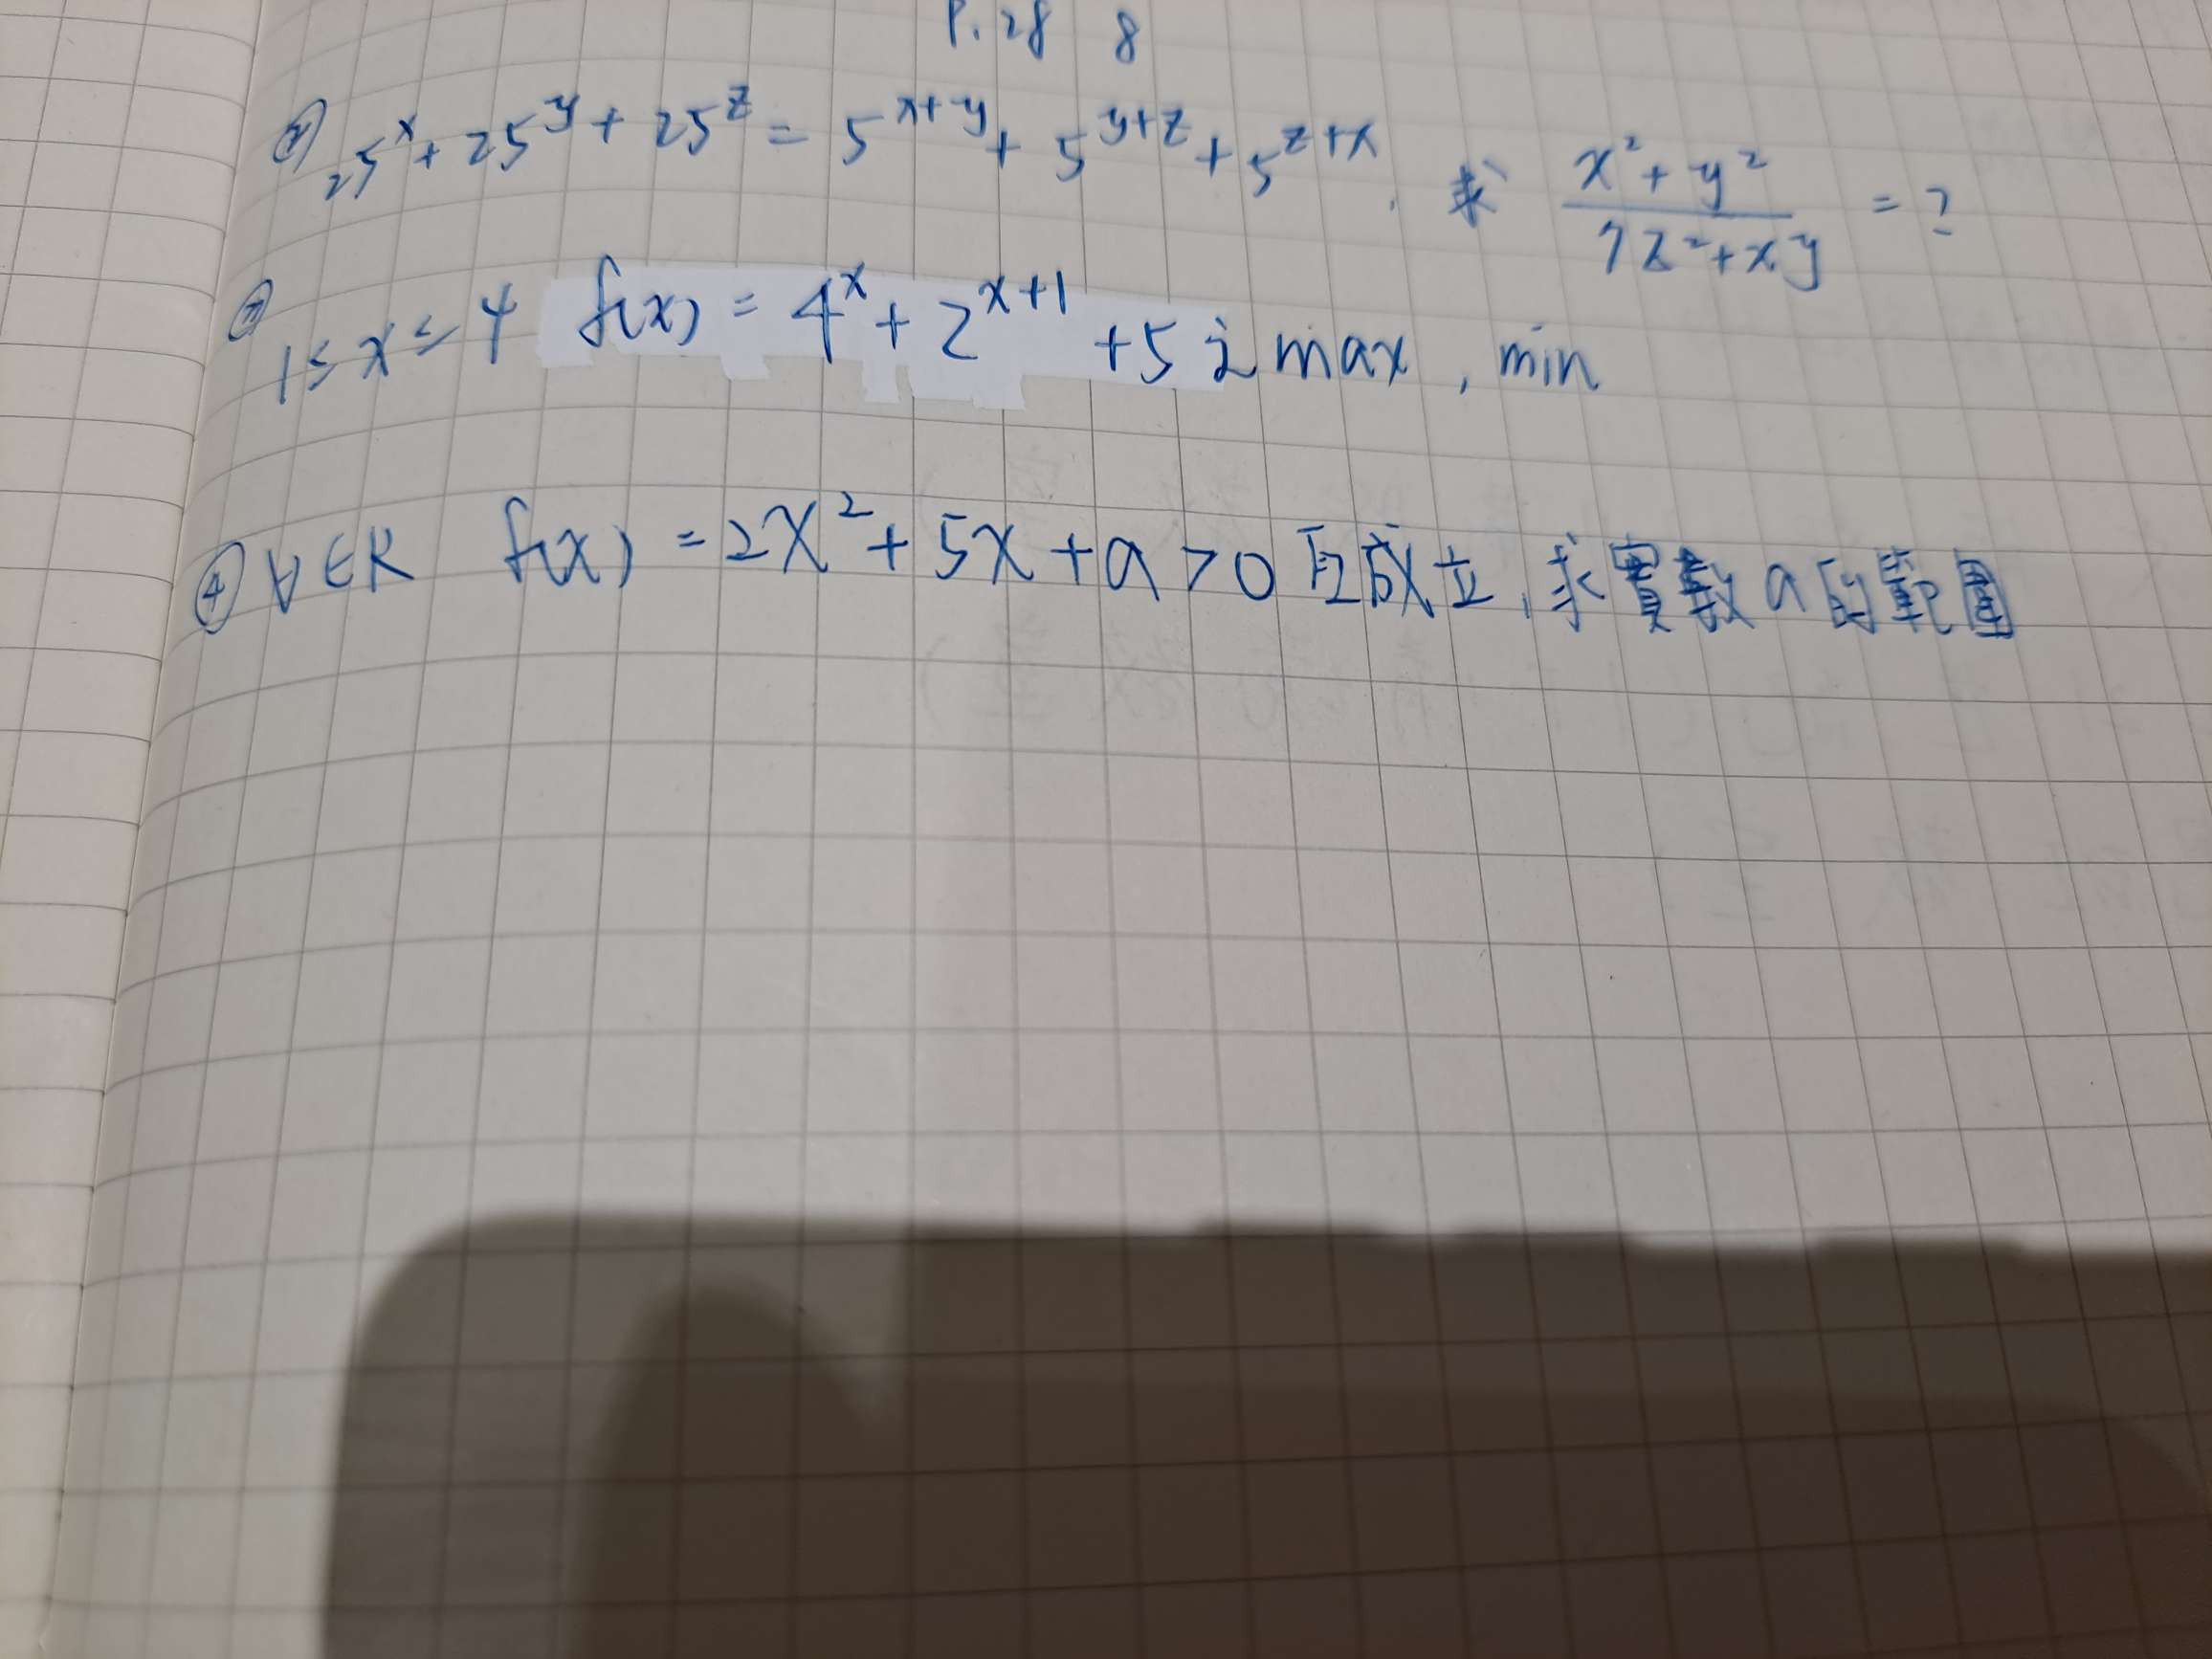 P.28 8
② 25^x + 25^y + 25^z = 5^{x+y} + 5^{y+z} + 5^{z+x}, 求 \frac{x²+y²}{7z²+xy} = ?
③ 1≤x≤4 f(x) = 4^x + 2^{x+1} + 5 之 max, min
④ ∀∈R f(x) = 2x² + 5x + a > 0 互成立, 求實數a的範圍